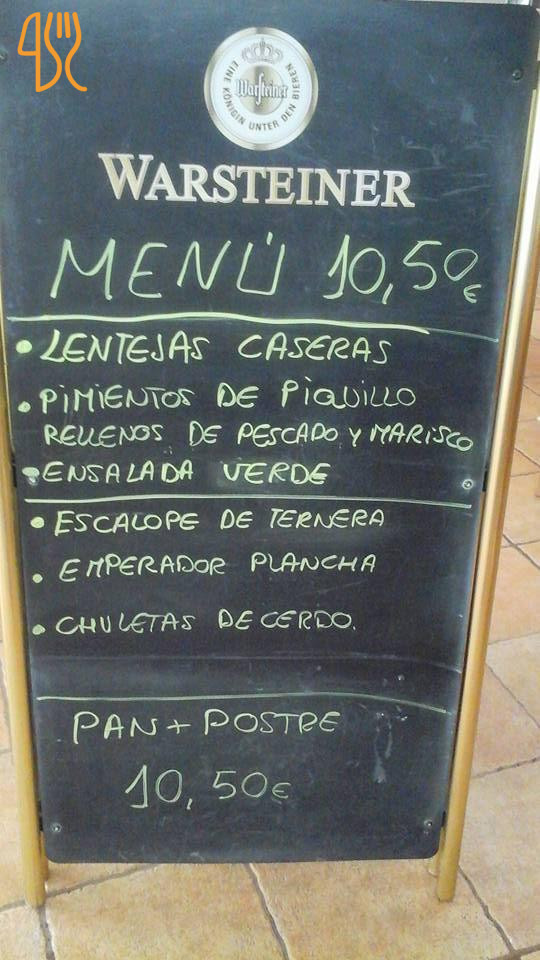 EINE KÖNIGIN UNTER DEN BIEREN
Warsteiner
WARSTEINER
MENÚ 10,50€
• LENTEJAS CASERAS
• PIMIENTOS DE PIQUILLO
RELLENOS DE PESCADO Y MARISCO
• ENSALADA VERDE
• ESCALOPE DE TERNERA
• EMPERADOR PLANCHA
• CHULETAS DE CERDO.
PAN + POSTRE
10,50€